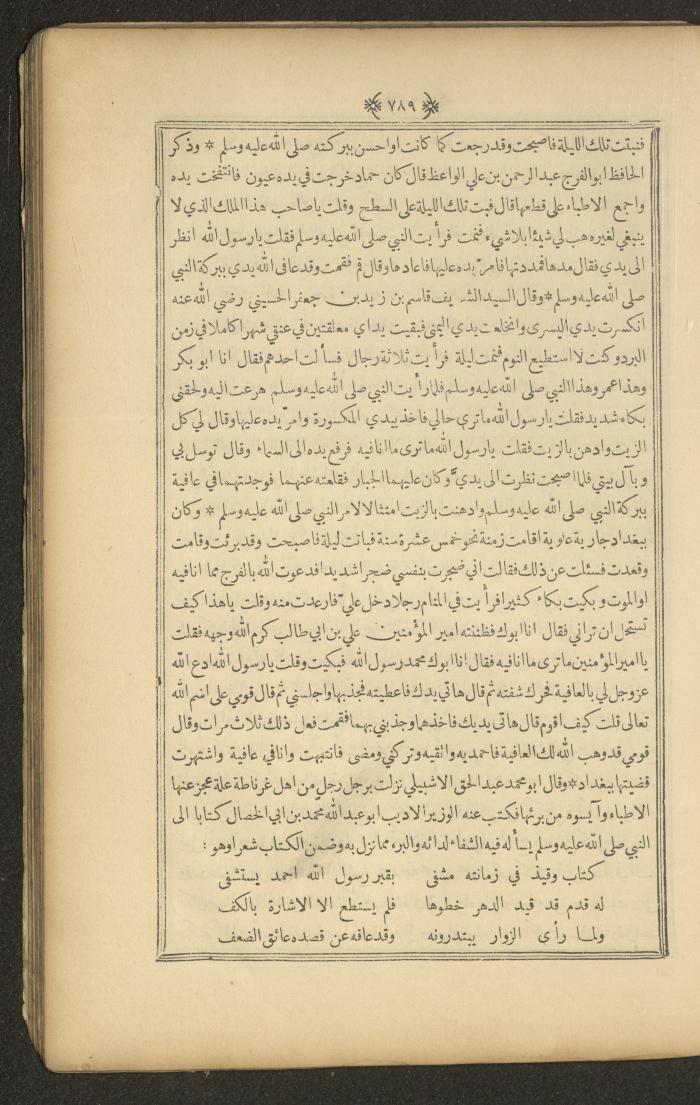 ﴿ ٧٨٩ ﴾
فنبتت تلك الليلة فاصبحت وقد رجعت كما كانت او احسن ببركته صلى الله عليه وسلم * وذكر
الحافظ ابو الفرج عبد الرحمن بن علي الواعظ قال كان حماد خرجت في يده عيون فانتفخت يده
واجمع الاطباء على قطعها قال فبت تلك الليلة على السطح وقلت يا صاحب هذا الملك الذي لا
ينبغي لغيره هب لي شيئا بلا شيء فنمت فرأيت النبي صلى الله عليه وسلم فقلت يا رسول الله انظر
الى يدي فقال مدها فمددتها فامرّ يده عليها فاعادها وقال قم فقمت وقد عافى الله يدي ببركة النبي
صلى الله عليه وسلم * وقال السيد الشريف قاسم بن زيد بن جعفر الحسيني رضي الله عنه
انكسرت يدي اليسرى وانخلعت يدي اليمنى فبقيت يداي معلقتين في عنقي شهرا كاملا في زمن
البرد وكنت لا استطيع النوم فنمت ليلة فرأيت ثلاثة رجال فسألت احدهم فقال انا ابو بكر
وهذا عمر وهذا النبي صلى الله عليه وسلم فلما رأيت النبي صلى الله عليه وسلم هرعت اليه ولحقني
بكاء شديد فقلت يا رسول الله ما ترى حالي فاخذ بيدي المكسورة وامرّ يده عليها وقال لي كل
الزيت وادهن بالزيت فقلت يا رسول الله ما ترى ما انا فيه فرفع يده الى السماء وقال توسل بي
وبآل بيتي فلما اصبحت نظرت الى يديّ وكان عليهما الجبار فقلعته عنهما فوجدتهما في عافية
ببركة النبي صلى الله عليه وسلم وادهنت بالزيت امتثالا لامر النبي صلى الله عليه وسلم * وكان
ببغداد جارية علوية اقامت زمنة نحو خمس عشرة سنة فباتت ليلة فاصبحت وقد برئت وقامت
وقعدت فسئلت عن ذلك فقالت اني ضجرت بنفسي ضجرا شديدا فدعوت الله بالفرج مما انا فيه
او الموت وبكيت بكاء كثيرا فرأيت في المنام رجلا دخل عليّ فارعدت منه وقلت يا هذا كيف
تستحل ان تراني فقال انا ابوك فظننته امير المؤمنين علي بن ابي طالب كرم الله وجهه فقلت
يا امير المؤمنين ما ترى ما انا فيه فقال انا ابوك محمد رسول الله فبكيت وقلت يا رسول الله ادع الله
عز وجل لي بالعافية فحرك شفتيه ثم قال هاتي يدك فاعطيته فجذبها واجلسني ثم قال قومي على اسم الله
تعالى قلت كيف اقوم قال هاتي يديك فاخذهما وجذبني بهما فقمت فعل ذلك ثلاث مرات وقال
قومي قد وهب الله لك العافية فاحمديه واتقيه وتركني ومضى فانتبهت وانا في عافية واشتهرت
قضيتها ببغداد * وقال ابو محمد عبد الحق الاشبيلي نزلت برجل رجل من اهل غرناطة علة عجز عنها
الاطباء وآيسوه من برئها فكتب عنه الوزير الاديب ابو عبد الله محمد بن ابي الخصال كتابا الى
النبي صلى الله عليه وسلم يسأله فيه الشفاء لدائه والبرء مما نزل به وضمن الكتاب شعرا وهو :
كتاب وقيذ في زمانته مشفى بقبر رسول الله احمد يستشفى
له قدم قد قيد الدهر خطوها فلم يستطع الا الاشارة بالكف
ولما رأى الزوار يبتدرونه وقد عاقه عن قصده عائق الضعف